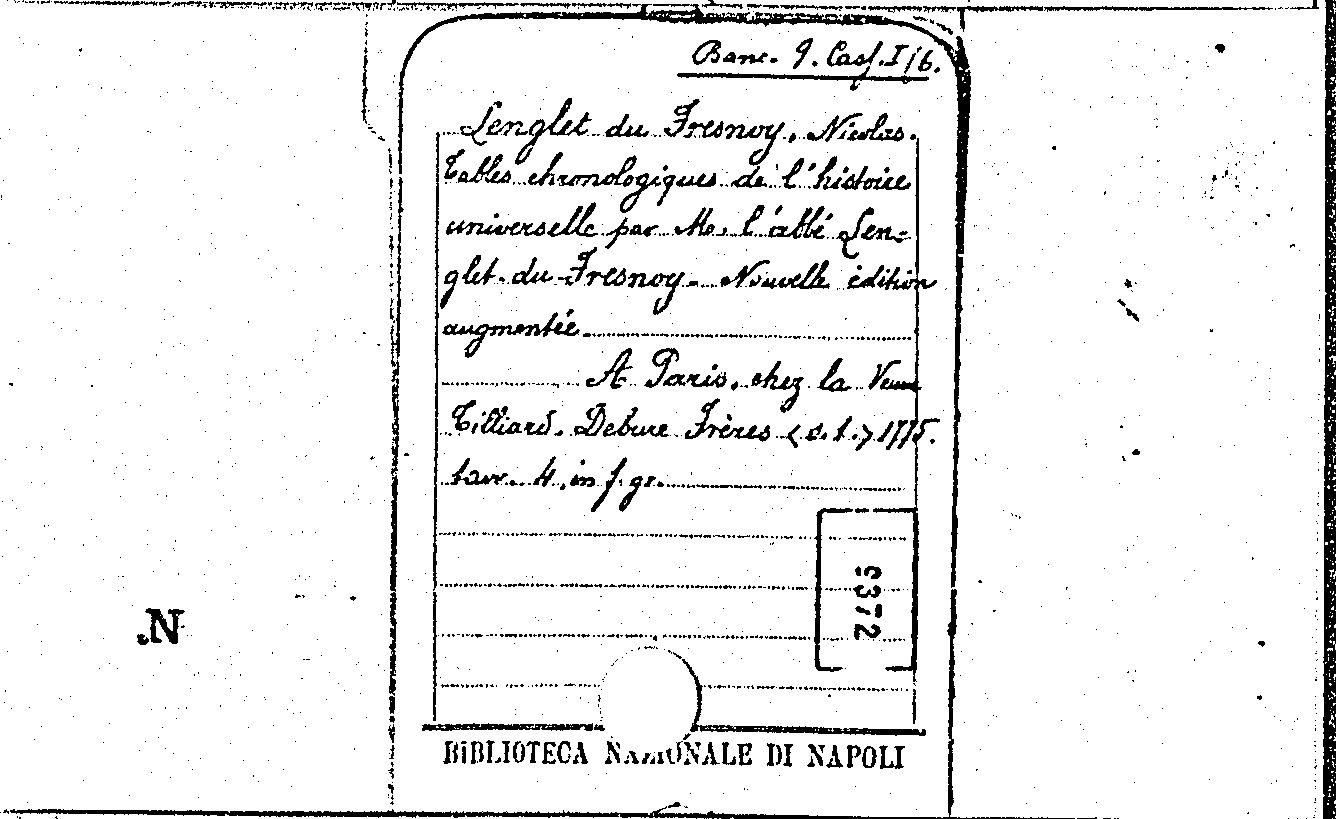 Banc. 9. Casf. I/6.
Lenglet du Fresnoy, Nicolas.
Tables chronologiques de l'histoire
universelle par Mr. l'abbé Len-
glet du Fresnoy. Nouvelle édition
augmentée.
A Paris, chez la Veuve
Tilliard. Debure Frères < s. t. > 1775.
tavv. 4. in f. gr.
9372
N.
BIBLIOTECA NAZIONALE DI NAPOLI